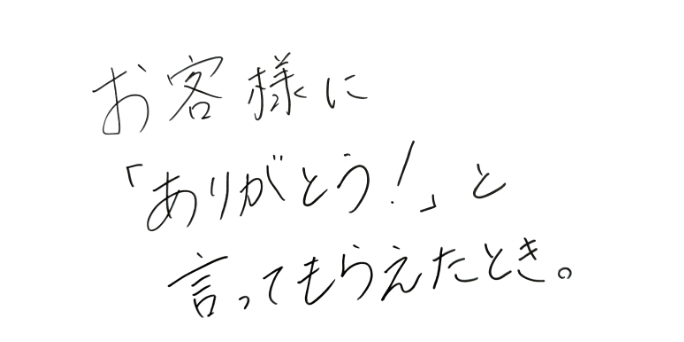 お客様に
「ありがとう！」と
言ってもらえたとき。